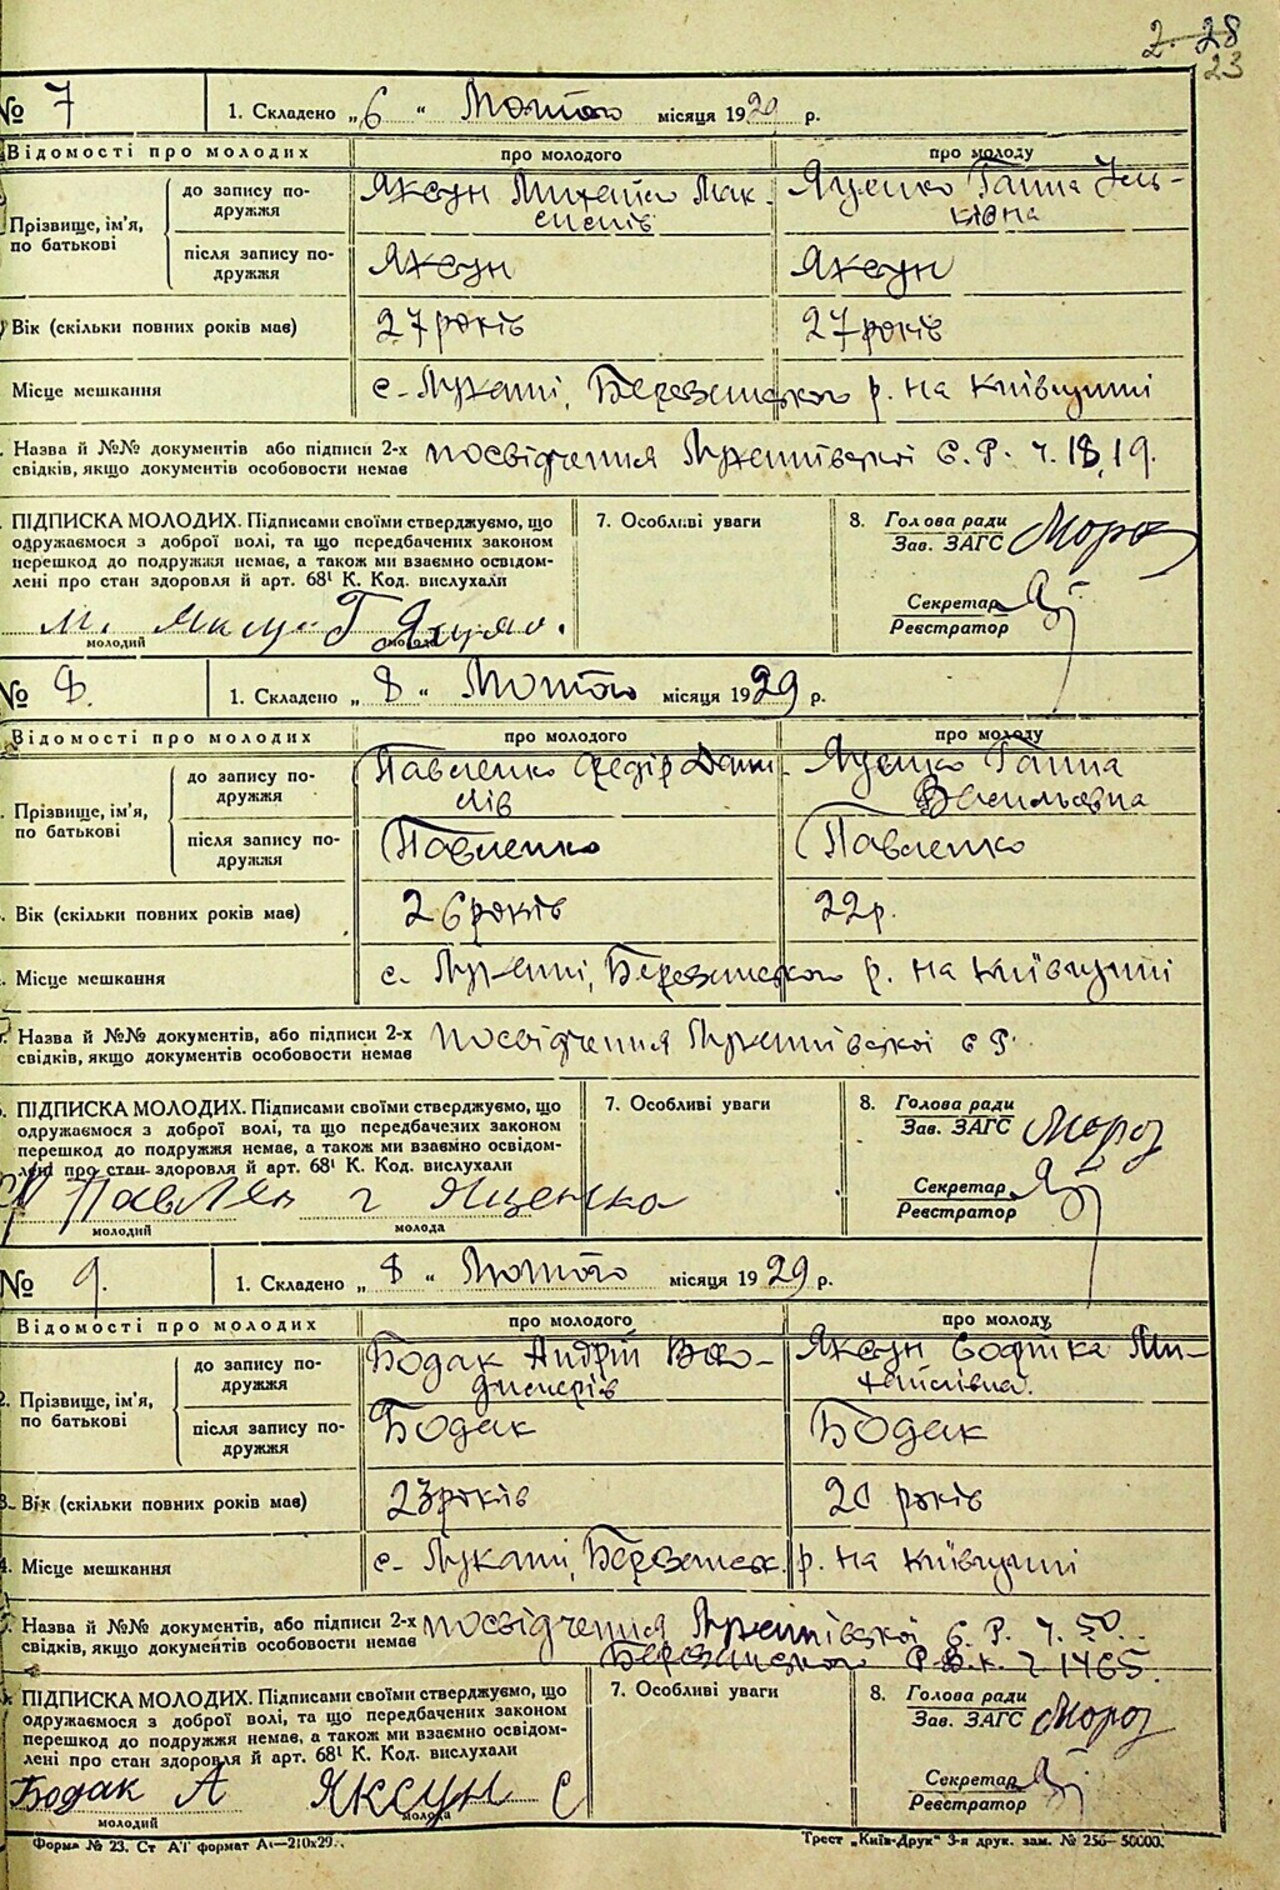 2. 28
23
№ 7 1. Складено „6“ Лютого місяця 1929 р.
Відомості про молодих про молодого про молоду
Прізвище, ім'я, по батькові
до запису по-
дружжя
Яксун Михайло Мак-
симів
Яценко Ганна Іль-
ківна
після запису по-
дружжя
Яксун Яксун
Вік (скільки повних років має) 27 років 27 років
Місце мешкання с. Лукаші, Березанського р. на Київщині
Назва й №№ документів або підписи 2-х
свідків, якщо документів особовости немає
посвідчення Лукашівської С. Р. ч. 18, 19.
ПІДПИСКА МОЛОДИХ. Підписами своїми стверджуємо, що
одружаємося з доброї волі, та що передбачених законом
перешкод до подружжя немає, а також ми взаємно освідом-
лені про стан здоровля й арт. 68¹ К. Код. вислухали
молодий молода
7. Особливі уваги
8. Голова ради
Зав. ЗАГС Мороз
Секретар
Реєстратор
№ 8. 1. Складено „8“ Лютого місяця 1929 р.
Відомості про молодих про молодого про молоду
Прізвище, ім'я,
по батькові
до запису по-
дружжя
Павленко Федір Дани-
лів
Яценко Ганна
Васильовна
після запису по-
дружжя
Павленко Павленко
Вік (скільки повних років має) 26 років 22 р.
Місце мешкання с. Лукаші, Березанського р. на Київщині
Назва й №№ документів, або підписи 2-х
свідків, якщо документів особовости немає
посвідчення Лукашівської с Р.
ПІДПИСКА МОЛОДИХ. Підписами своїми стверджуємо, що
одружаємося з доброї волі, та що передбачених законом
перешкод до подружжя немає, а також ми взаємно освідом-
лені про стан здоровля й арт. 68¹ К. Код. вислухали
Павлен г Яценка
молодий молода
7. Особливі уваги
8. Голова ради
Зав. ЗАГС Мороз
Секретар
Реєстратор
№ 9. 1. Складено „8“ Лютого місяця 1929 р.
Відомості про молодих про молодого про молоду
2. Прізвище, ім'я,
по батькові
до запису по-
дружжя
Бодак Андрій Воло-
димирів
Яксун Софійка Ми-
хайлівна.
після запису по-
дружжя
Бодак Бодак
3. Вік (скільки повних років має) 23 років 20 років
4. Місце мешкання с. Лукаші, Березанськ. р. на Київщині
Назва й №№ документів, або підписи 2-х
свідків, якщо документів особовости немає
посвідчення Лукашівської С. Р. ч. 50.
Березанського Р.В.К. ч 1465.
ПІДПИСКА МОЛОДИХ. Підписами своїми стверджуємо, що
одружаємося з доброї волі, та що передбачених законом
перешкод до подружжя немає, а також ми взаємно освідом-
лені про стан здоровля й арт. 68¹ К. Код. вислухали
Бодак А Яксун С
молодий молода
7. Особливі уваги
8. Голова ради
Зав. ЗАГС Мороз
Секретар
Реєстратор
Форма № 23. Ст АТ формат А4—210x29.. Трест „Київ-Друк“ 3-я друк. зам. № 256—50000.